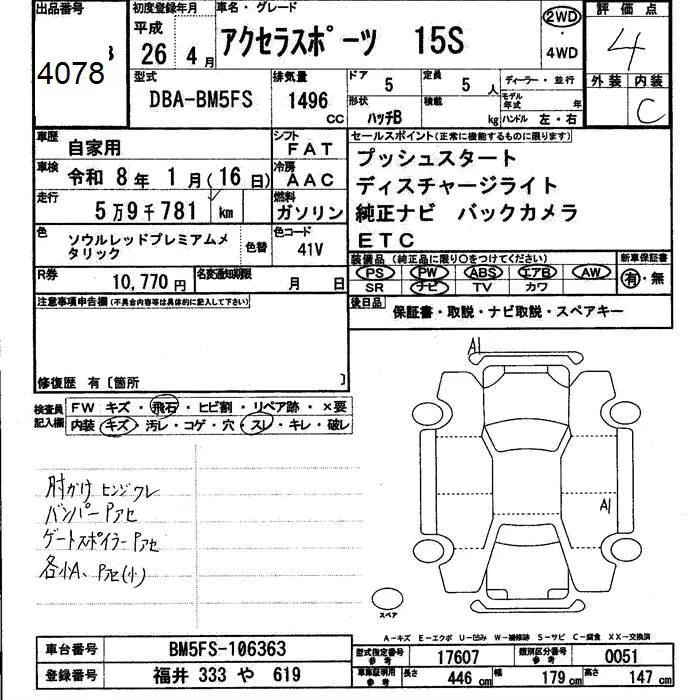 出品番号 初度登録年月 車名・グレード 2WD・4WD 評価点
4078 平成 26 4月 アクセラスポーツ 15S 4
型式 排気量 ドア 定員 ディーラー・並行 外装 内装
DBA-BM5FS 1496 CC 5 5人 モデル年式 年 C
形状 積載
ハッチB kg ハンドル 左・右
車歴 自家用 シフト FAT セールスポイント(正常に機能するものに限ります)
車検 令和 8年 1月(16日) 冷房 AAC プッシュスタート
ディスチャージライト
走行 5万9千781 km 燃料 ガソリン 純正ナビ バックカメラ
ETC
色 ソウルレッドプレミアムメタリック 色替 色コード 41V
装備品(純正品に限り○をつけてください) 新車保証書
PS PW ABS エアB AW 有・無
SR ナビ TV カワ
R券 10,770円 名変通知期限 月 日
後日品 保証書・取説・ナビ取説・スペアキー
注意事項申告欄(不具合内容等は具体的に記入して下さい)
修復歴 有〔箇所 〕
検査員記入欄 FW キズ・飛石・ヒビ割・リペア跡・×要
内装 キズ・汚レ・コゲ・穴・スレ・キレ・破レ
A1
A1
肘かけ ヒンジワレ
バンパーPアセ
ゲートスポイラーPアセ
各小A、Pアセ(小)
スペア
A-キズ E-エクボ U-凹み W-補修跡 S-サビ C-腐食 XX-交換済
車台番号 BM5FS-106363 型式指定番号 参考 17607 類別区分番号 参考 0051
登録番号 福井 333 や 619 車庫証明用 参考 長さ 446 cm 幅 179 cm 高さ 147 cm